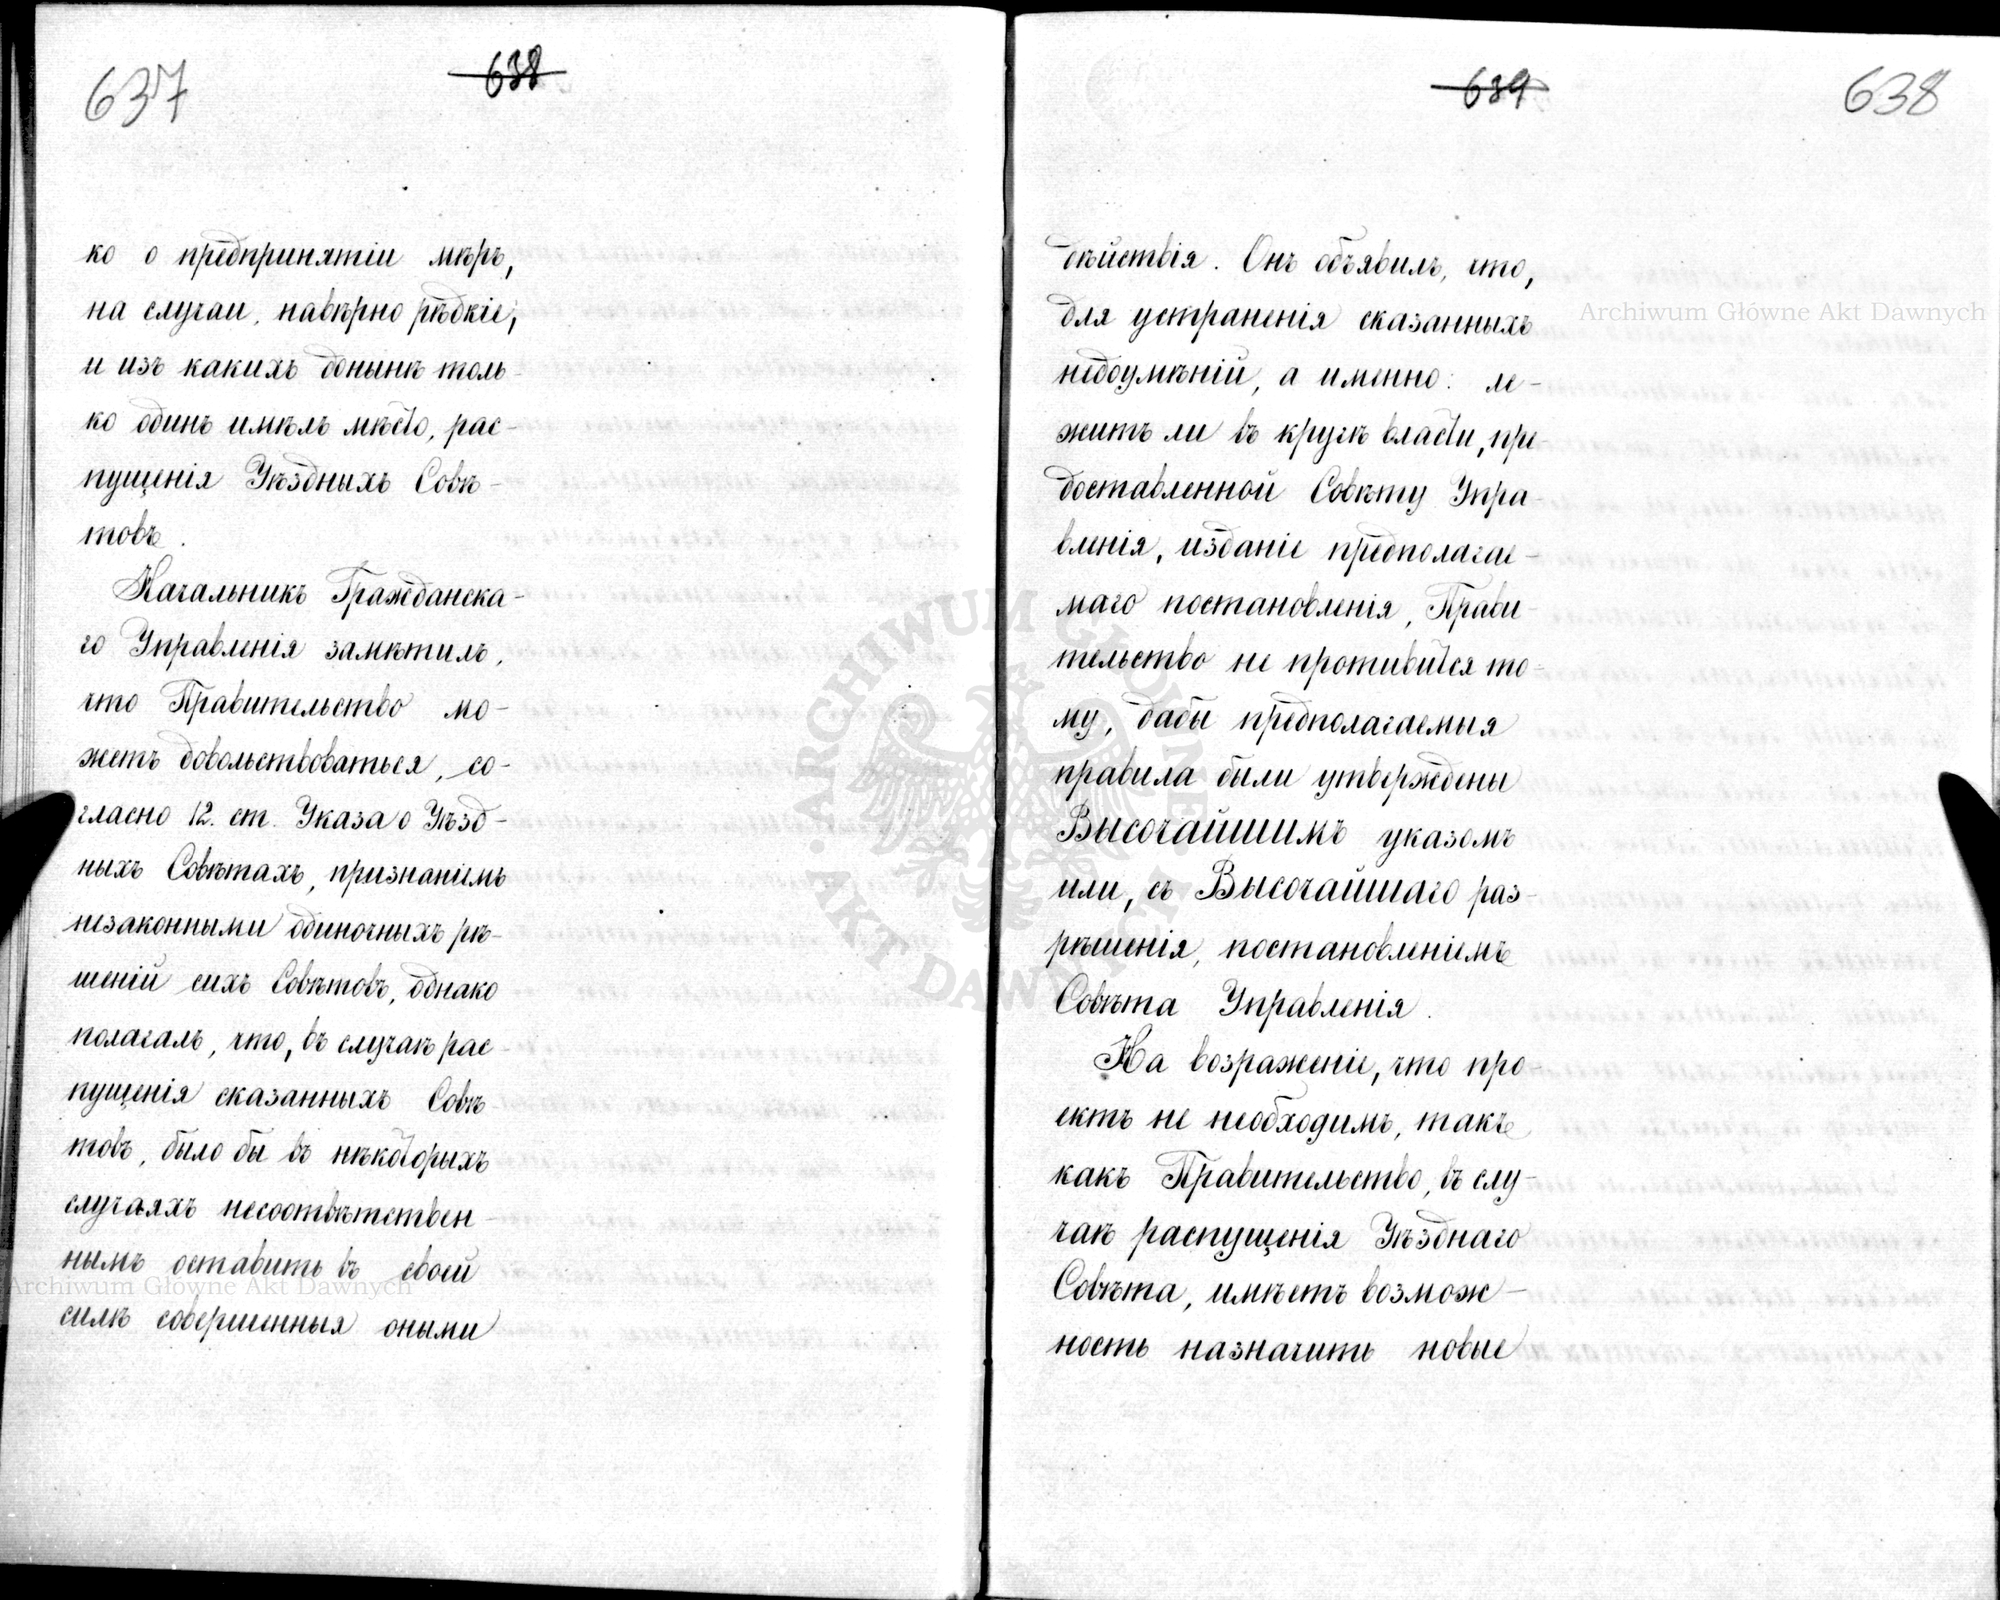 637
638
ко о предпринятіи мѣръ,
на случаи, навѣрно рѣдкіе,
и изъ какихъ донынѣ толь-
ко одинъ имѣлъ мѣсто, рас-
пущенія Уѣздныхъ Совѣ-
товъ.
Начальникъ Гражданска-
го Управленія замѣтилъ,
что Правительство мо-
жетъ довольствоваться, со-
гласно 12. ст. Указа о Уѣзд-
ныхъ Совѣтахъ, признаніемъ
незаконными одиночныхъ рѣ-
шеній сихъ Совѣтовъ, однако
полагалъ, что, въ случаѣ рас-
пущенія сказанныхъ Совѣ-
товъ, было бы въ нѣкоторыхъ
случаяхъ несоотвѣтствен-
нымъ оставить въ своей
силѣ совершенныя оными
Archiwum Główne Akt Dawnych
639
638
дѣйствія. Онъ объявилъ, что,
для устраненія сказанныхъ
недоумѣній, а именно: ле-
житъ ли въ кругѣ власти, пре-
доставленной Совѣту Упра-
вленія, изданіе предполагае-
маго постановленія, Прави-
тельство не противится то-
му, дабы предполагаемыя
правила были утверждены
Высочайшимъ указомъ
или, съ Высочайшаго раз-
рѣшенія, постановленіемъ
Совѣта Управленія.
На возраженіе, что про-
ектъ не необходимъ, такъ
какъ Правительство, въ слу-
чаѣ распущенія Уѣзднаго
Совѣта, имѣетъ возмож-
ность назначить новые
Archiwum Główne Akt Dawnych
ARCHIWUM GŁÓWNE
AKT DAWNYCH